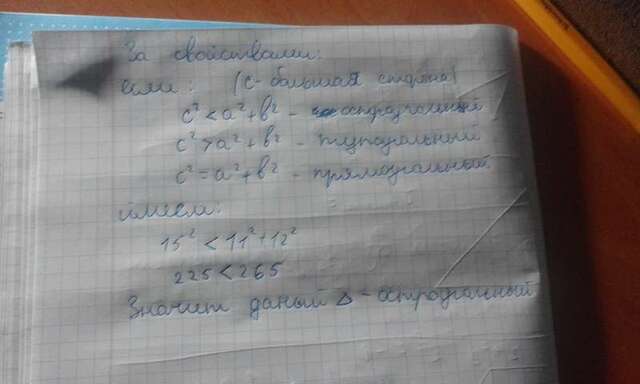 За свойствами.
Если: (c - большая сторона)
c² < a² + b² - остроугольный
c² > a² + b² - тупоугольный
c² = a² + b² - прямоугольный.
имеем:
15² < 11² + 12²
225 < 265
Значит даный Δ - остроугольный